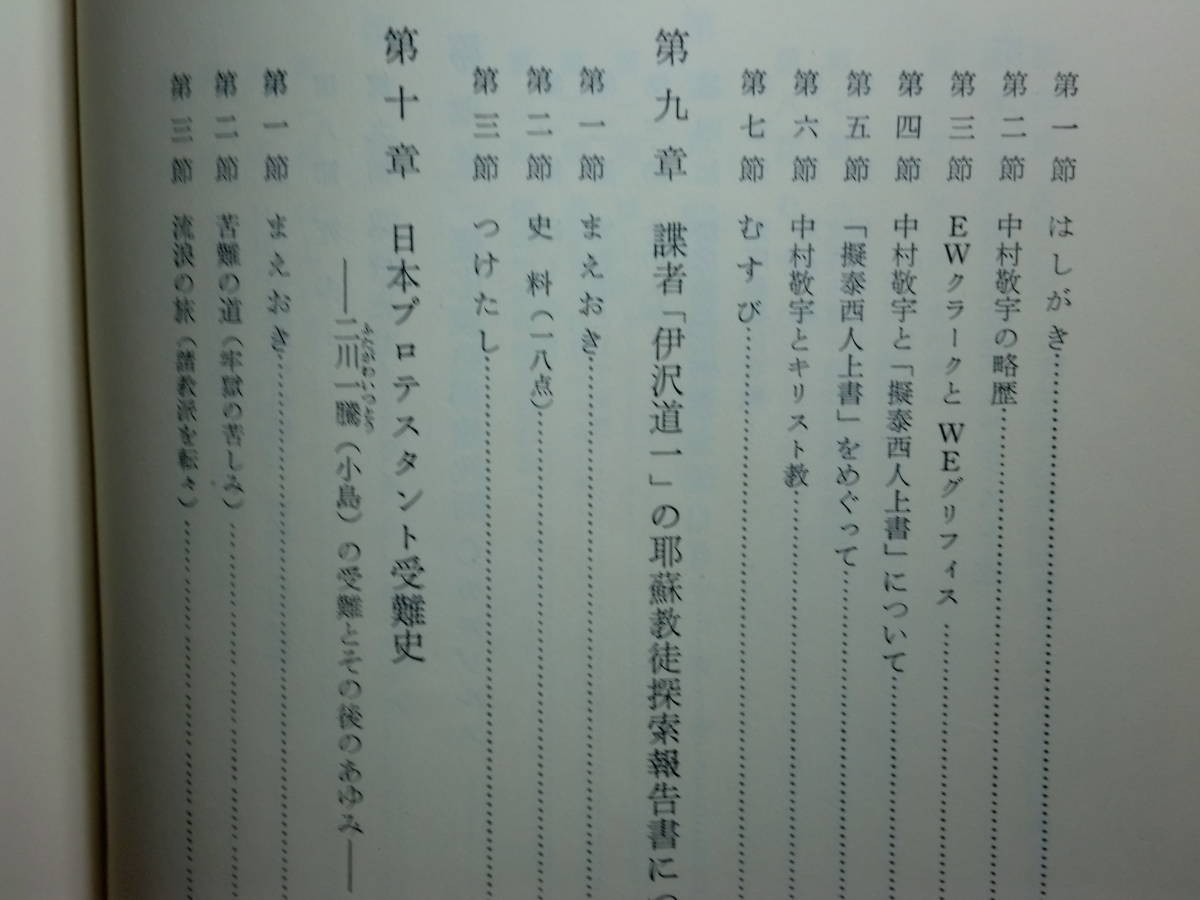 第一節 はしがき
第二節 中村敬宇の略歴
第三節 EWクラークと WEグリフィス
第四節 中村敬宇と「擬泰西人上書」について
第五節 「擬泰西人上書」をめぐって
第六節 中村敬宇とキリスト教
第七節 むすび
第九章 諜者「伊沢道一」の耶蘇教徒探索報告書につ
第一節 まえおき
第二節 史 料(一八点)
第三節 つけたし
第十章 日本プロテスタント受難史
――二川一騰(小島)の受難とその後のあゆみ――
ふたがわいつとう
第一節 まえおき
第二節 苦難の道(牢獄の苦しみ)
第三節 流浪の旅(諸教派を転々)